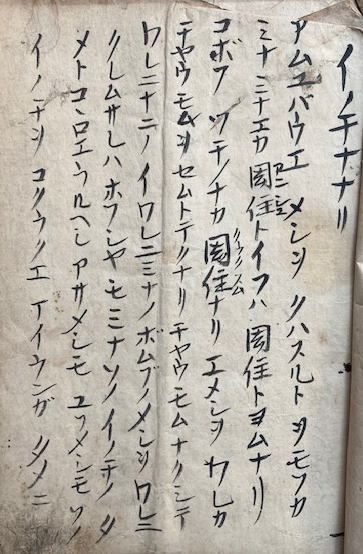 イノチナリ
アムユバウエ メシヲ クハスルト ヲモフカ
ミナミナエカ 園住トイフハ 園住トヨムナリ
コボフ ツチノナカ 園住ナリ エメシヲ ワレカ
チヤウモムヲセムトテクナリ チヤウモムナクシテ
ワレニナニノイワレニミナノ ボムブノメシヲ ワレニ
クレムサレハ ホフシヤモ ミナソノ イノチノタ
メトコヽロエラルヘシ アサメシモ ユフメシモ ソノ
イノチヲ コクラクノエ アイウンガ タメニ